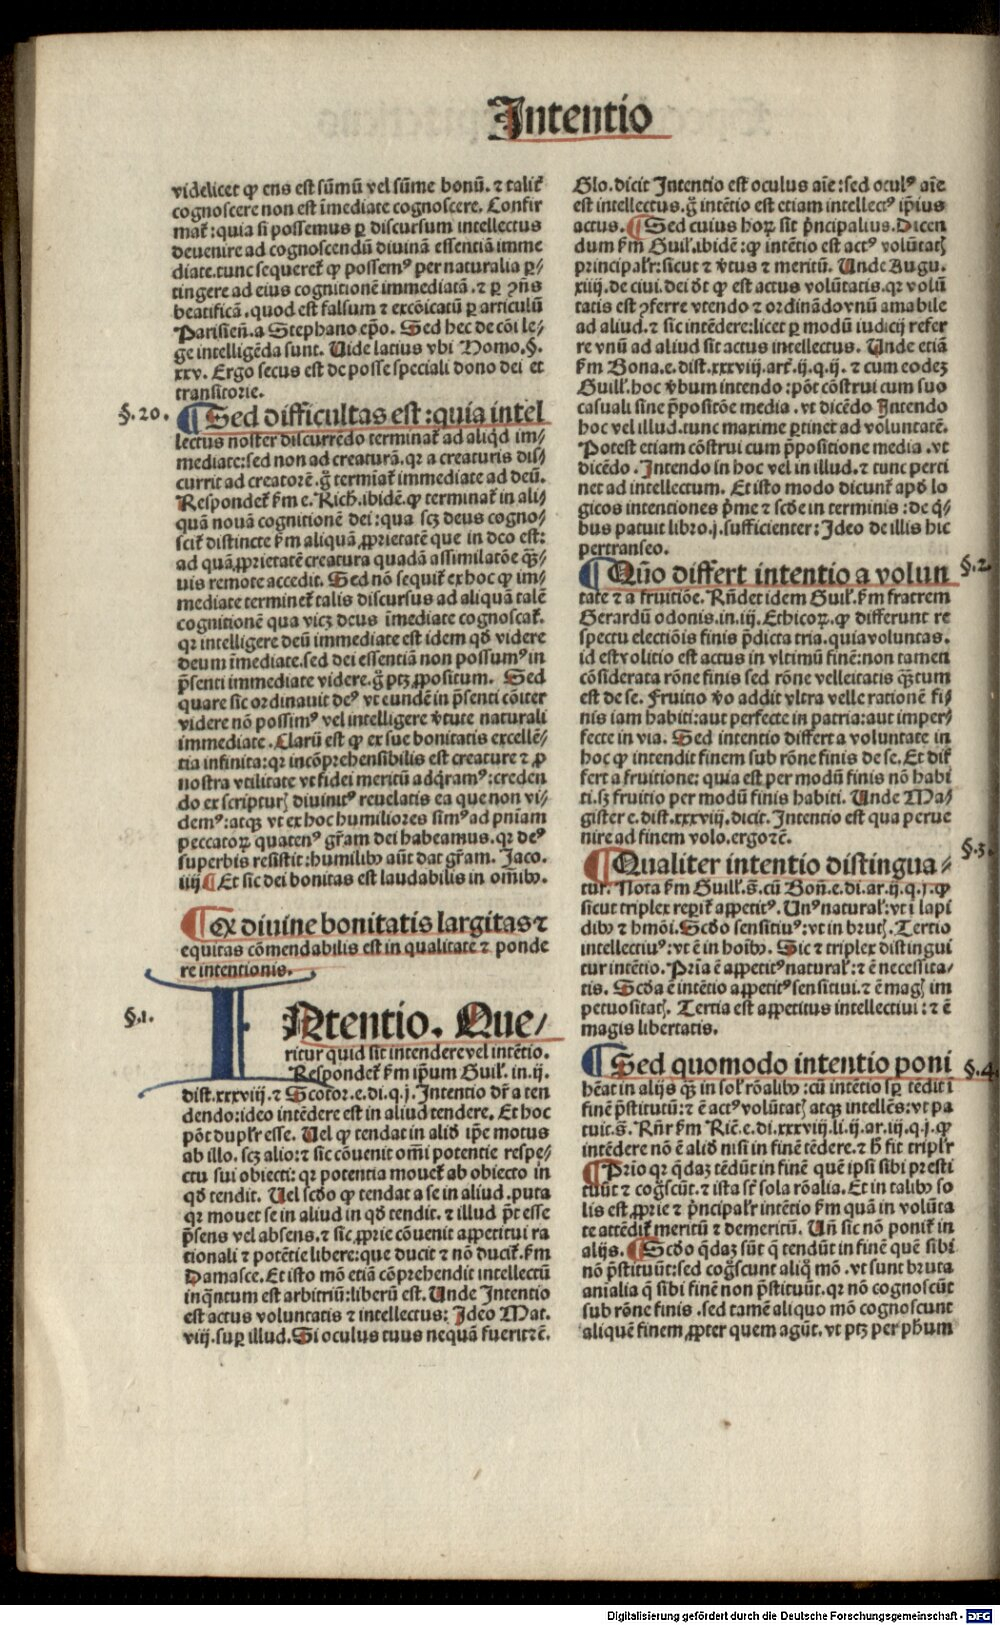 Intentio
videlicet ꝙ ens est sũmũ vel sũme bonũ. ⁊ talit̃
cognoscere non est ĩmediate cognoscere. Confir
mat̃: quia si possemus ꝑ discursum intellectus
devenire ad cognoscendũ divinã essentiã imme
diate. tunc sequeret̃ ꝙ possemꝰ per naturalia ꝑ⸗
tingere ad eius cognitionẽ immediatã. ⁊ ꝑ ꝯñs
beatificã. quod est falsum ⁊ excõicatũ ꝑ articulũ
Parisieñ. a Stephano ep̃o. Sed hec de cõi le⸗
ge intelligẽda sunt. Uide latius vbi Homo. §.
xxv. Ergo secus est de posse speciali dono dei et
transitorie.
§. 20. ¶ Sed difficultas est: quia intel
lectus noster discurrẽdo terminat̃ ad aliqd im⸗
mediate: sed non ad creaturã. qꝛ a creaturis dis⸗
currit ad creatorẽ. g̃ termiat̃ immediate ad deũ.
Respondet̃ ẜm e. Rich. ibidẽ. ꝙ terminat̃ in ali⸗
quã nouã cognitionẽ dei: qua scꝫ deus cogno⸗
scit̃ distincte ẜm aliquã ꝓprietatẽ que in deo est:
ad quã ꝓprietatẽ creatura quadã assimilatõe q̃ꝫ⸗
uis remote accedit. Sed nõ sequit̃ ex hoc ꝙ im⸗
mediate terminet̃ talis discursus ad aliquã talẽ
cognitionẽ qua vicꝫ deus ĩmediate cognoscat̃.
qꝛ intelligere deũ immediate est idem qđ videre
deum ĩmediate. sed dei essentiã non possumꝰ in
p̃senti immediate videre. g̃ ptꝫ ꝓpositum. Sed
quare sic ordinauit deꝰ vt eundẽ in p̃senti cõiter
videre nõ possimꝰ vel intelligere ꝟtute naturali
immediate. Clarũ est ꝙ ex sue bonitatis excellẽ⸗
tia infinita: qꝛ incõprehensibilis est creature ⁊ ꝓ
nostra vtilitate vt fidei meritũ adq̃ramꝰ: creden
do ex scriptur̃ diuinitꝰ reuelatis ea que non vi⸗
demꝰ: atqꝫ vt ex hoc humiliores simꝰ ad pñiam
peccatoꝝ quatenꝰ gr̃am dei habeamus. qꝛ deꝰ
superbis resistit: humilibꝰ aũt dat gr̃am. Jaco.
iiij ¶ Et sic dei bonitas est laudabilis in om̃ibꝰ.
¶ Ex diuine bonitatis largitas ⁊
equitas cõmendabilis est in qualitate ⁊ ponde
re intentionis.
§. 1. INtentio. Que⸗
ritur quid sit intendere vel intẽtio.
Respondet̃ ẜm ip̃um Guil̃. in. ij.
dist. xxxviij. ⁊ Scotoꝛ. e. di. q. j. Intentio dr̃ a ten
dendo: ideo intẽdere est in aliud tendere. Et hoc
põt dupl̃r esse. Uel ꝙ tendat in aliđ ip̃e motus
ab illo. scꝫ alio: ⁊ sic cõuenit om̃i potentie respe⸗
ctu sui obiecti: qꝛ potentia mouet̃ ab obiecto in
qđ tendit. Uel scđo ꝙ tendat a se in aliud. puta
qꝛ mouet se in aliud in qđ tendit. ⁊ illud p̃t esse
p̃sens vel absens. ⁊ sic ꝓprie cõuenit appetitui ra
tionali ⁊ potẽtie libere: que ducit ⁊ nõ ducit̃. ẜm
Damasce. Et isto mõ etiã cõprehendit intellectũ
inq̃ntum est arbitriũ: liberũ est. Unde Intentio
est actus voluntatis ⁊ intellectus: Ideo Mat.
viij. suꝑ illud. Si oculus tuus nequã fuerit ⁊ẽ.
Glo. dicit Intentio est oculus aĩe: sed oculꝰ aĩe
est intellectus. g̃ intẽtio est etiam intellectꝰ ip̃ius
actus. ¶ Sed cuius hoꝝ sit p̃ncipalius. Dicen
dum ẜm Guil̃. ibidẽ: ꝙ intẽtio est actꝰ volũtat̃
principal̃r: sicut ⁊ ꝟtus ⁊ meritũ. Unde Augu.
xiiij. de ciui. dei dt̃ ꝙ est actus volũtatis. qꝛ volũ
tatis est ꝯferre vtendo ⁊ ordinãdo vnũ amabile
ad aliud. ⁊ sic intẽdere: licet ꝑ modũ iudicij refer
re vnũ ad aliud sit actus intellectus. Unde etiã
ẜm Bona. e. dist. xxxviij. art̃. ij. q. ij. ⁊ cum eodeꝫ
Guil̃. hoc ꝟbum intendo: põt cõstrui cum suo
casuali sine p̃positõe media. vt dicẽdo Intendo
hoc vel illud. tunc maxime ꝑtinet ad voluntatẽ.
Potest etiam cõstrui cum p̃positione media. vt
dicẽdo. Intendo in hoc vel in illud. ⁊ tunc perti
net ad intellectum. Et isto modo dicunt̃ apđ lo
gicos intentiones p̃me ⁊ scđe in terminis: de q̃⸗
bus patuit libro. j. sufficienter: Ideo de illis hic
pertranseo.
¶ Quõ differt intentio a volun §. 2.
tate ⁊ a fruitiõe. Rñdet idem Guil̃. ẜm fratrem
Gerardũ odonis. in. iij. Ethicoꝝ. ꝙ differunt re
spectu electiõis finis p̃dicta tria. quia voluntas.
id est volitio est actus in vltimũ finẽ: non tamen
cõsiderata rõne finis sed rõne velleitatis q̃ꝫtum
est de se. Fruitio ꝟo addit vltra velle rationẽ fi⸗
nis iam habiti: aut perfecte in patria: aut imper⸗
fecte in via. Sed intentio differt a voluntate in
hoc ꝙ intendit finem sub rõne finis de se. Et dif
fert a fruitione: quia est per modũ finis nõ habi
ti. sꝫ fruitio per modũ finis habiti. Unde Ma⸗
gister e. dist. xxxviij. dicit. Intentio est qua perue
nire ad finem volo. ergo ⁊ẽ.
¶ Qualiter intentio distingua⸗ §. 3.
tur. Nota ẜm Guill̃. s̃. cũ Boñ. e. di. ar. ij. q. j. ꝙ
sicut triplex reperit̃ appetitꝰ. Unꝰ natural̃: vt ĩ lapi
dibꝰ ⁊ hmõi. Scđo sensitiuꝰ: vt in brut̃. Tertio
intellectiuꝰ: vt ẽ in hoĩbꝰ. Sic ⁊ triplex distingui
tur intẽtio. Pria ẽ appetitꝰ natural̃: ⁊ ẽ necessita⸗
tis. Scđa ẽ intẽtio appetitꝰ sensitiui. ⁊ ẽ mag̃ im
petuositat̃. Tertia est appetitus intellectiui: ⁊ ẽ
magis libertatis.
¶ Sed quomodo intentio poni §. 4.
hẽat in alijs q̃ꝫ in sol̃ rõalibꝰ: cũ intẽtio sꝑ tẽdit ĩ
finẽ p̃stitutũ: ⁊ ẽ actꝰ volũtat̃ atqꝫ intellẽs: vt pa
tuit. s̃. Rñr ẜm Ric̃. e. di. xxxviij. li. ij. ar. iij. q. j. ꝙ
intẽdere nõ ẽ aliđ nisi in finẽ tẽdere. ⁊ h̃ fit tripl̃r
¶ Prio qꝛ q̃daꝫ tẽdũt in finẽ quẽ ipsi sibi presti
tuũt ⁊ cog̃scũt. ⁊ ista sĩ sola rõalia. Et in talibꝰ so
lis est ꝓprie ⁊ p̃ncipal̃r intẽtio ẜm quã in volũta
te attẽdit̃ meritũ ⁊ demeritũ. Uñ sic nõ ponit̃ in
alijs. ¶ Scđo q̃daꝫ sũt q̃ tendũt in finẽ quẽ sibi
nõ p̃stituũt: sed cog̃scunt aliq̃ mõ. vt sunt bruta
anialia q̃ sibi finẽ non p̃stituũt. qꝛ nõ cognoscũt
sub rõne finis. sed tamẽ aliquo mõ cognoscunt
aliquẽ finem ꝓpter quem agũt. vt ptꝫ per ph̃um
Digitalisierung gefördert durch die Deutsche Forschungsgemeinschaft - DFG